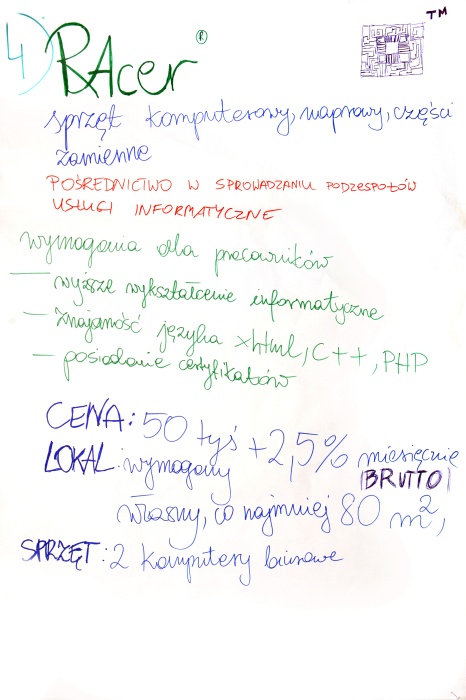 4) RAcer ®
TM
sprzęt komputerowy, naprawy, części
zamienne
POŚREDNICTWO W SPROWADZANIU PODZESPOŁÓW
USŁUGI INFORMATYCZNE
wymagania dla pracowników
— wyższe wykształcenie informatyczne
— znajomość języka xhtml, C++, PHP
— posiadanie certyfikatów
CENA: 50 tyś + 2,5% miesięcznie
BRUTTO
LOKAL: wymagany
własny, co najmniej 80 m²,
SPRZĘT: 2 komputery biurowe